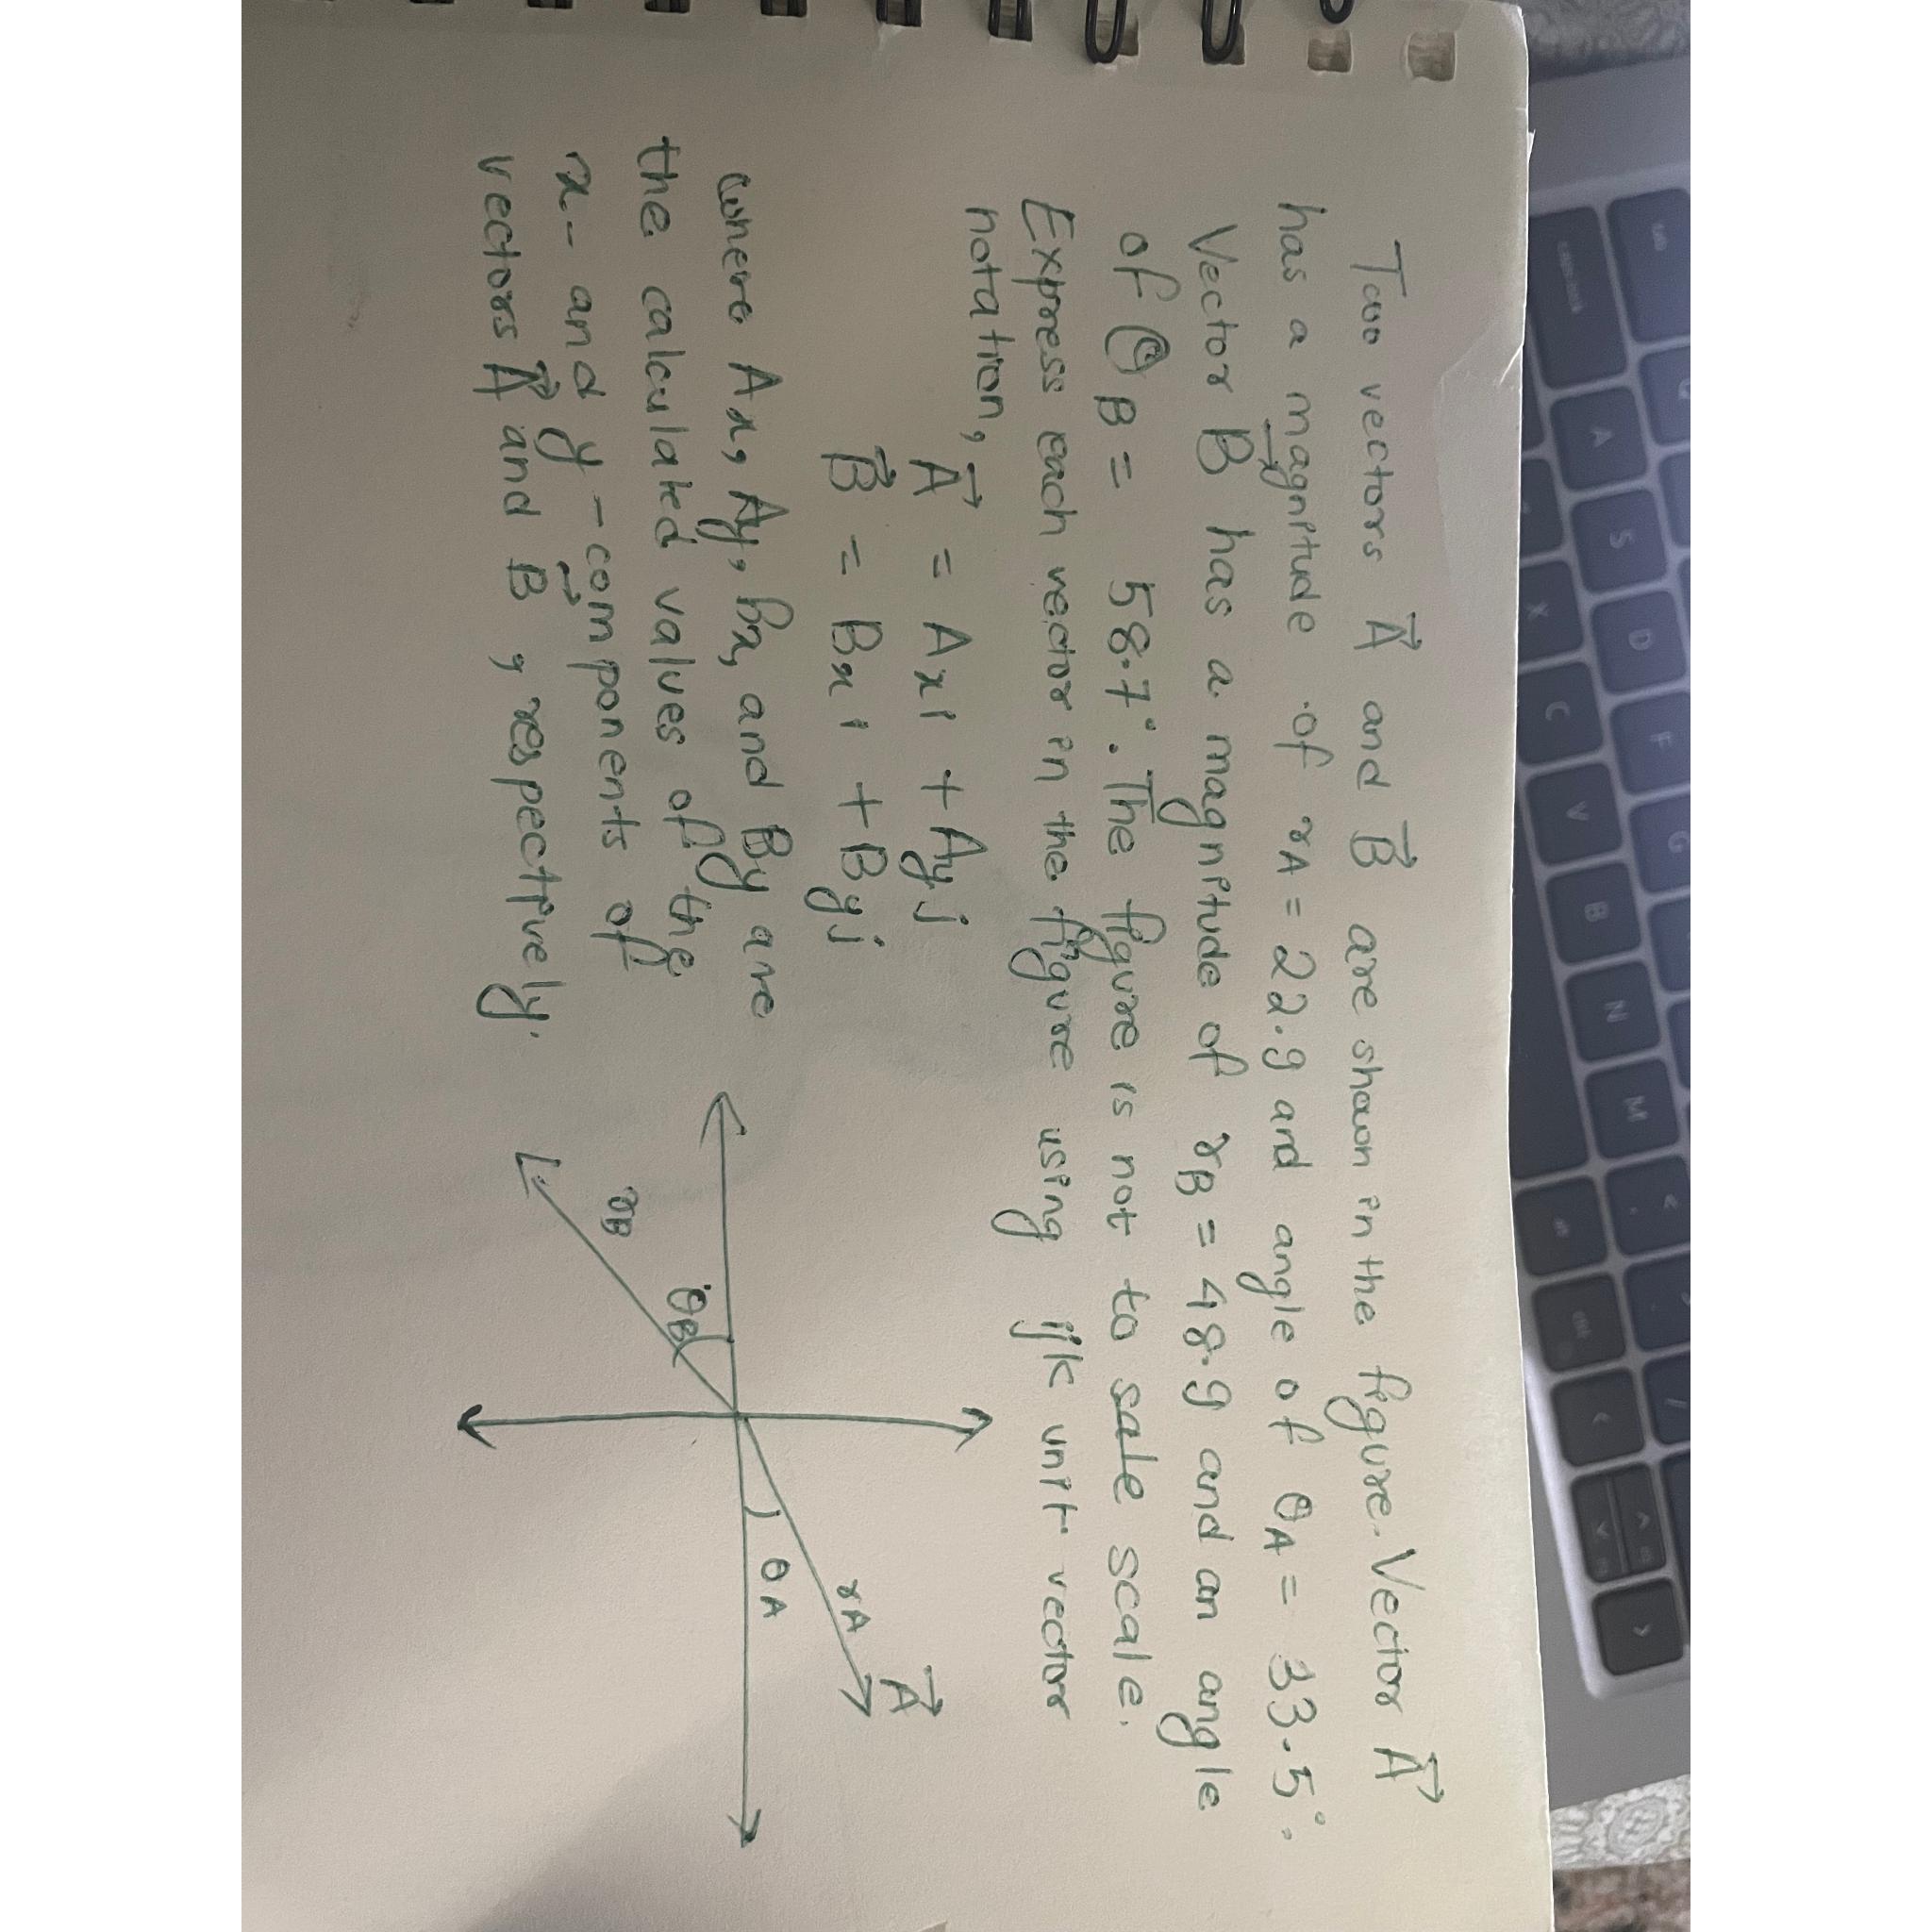 Two vectors A and B are shown in the figure. Vector A
has a magnitude of rA = 22.9 and angle of θA = 33.5°.
Vector B has a magnitude of rB = 48.9 and an angle
of θB = 58.7°. The figure is not to sale scale.
Express each vector in the figure using ijk unit vector
notation,
A = Axi + Ayj
B = Bxi + Byj
where Ax, Ay, Bx, and By are
the calculated values of the
x- and y-components of
vectors A and B, respectively.
A
rA
θA
θB
rB